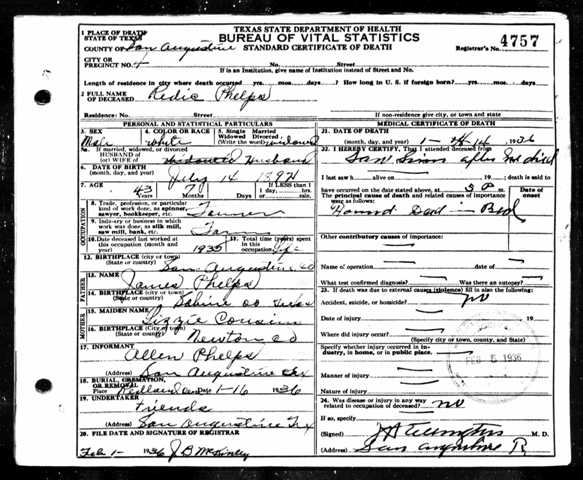 TEXAS STATE DEPARTMENT OF HEALTH
BUREAU OF VITAL STATISTICS
STANDARD CERTIFICATE OF DEATH
Registrar's No. 4757
1 PLACE OF DEATH
STATE OF TEXAS
COUNTY OF San Augustine
CITY OR
PRECINCT NO. No. Street
If in an Institution, give name of Institution instead of Street and No.
Length of residence in city where death occurred yrs. mos. days. How long in U. S. if foreign born? yrs. mos. days
2 FULL NAME
OF DECEASED Redic Phelps
Residence: No. Street If non-residence give city, or town and state
PERSONAL AND STATISTICAL PARTICULARS
3. SEX
Male
4. COLOR OR RACE
White
5. Single Married
Widowed Divorced
(Write the word) widowed
5a. If married, widowed, or divorced
HUSBAND of
(or) WIFE of Widowed Husband
6. DATE OF BIRTH
(month, day, and year) July 14 1892
7. AGE 43 7
IF LESS than
1 day, hrs.
or min.
OCCUPATION
8. Trade, profession, or particular
kind of work done, as spinner,
sawyer, bookkeeper, etc. Farmer
9. Industry or business in
which work was done, as silk mill,
saw mill, bank, etc. Farm
10. Date deceased last worked at
this occupation (month and
year) 1935
11. Total time (years)
spent in this
occupation
12. BIRTHPLACE (city or town)
(State or country) San Augustine co
FATHER
13. NAME James Phelps
14. BIRTHPLACE (city or town)
(State or country) Sabine co Texas
MOTHER
15. MAIDEN NAME Lizzie Cousin
16. BIRTHPLACE (city or town)
(State or country) Newton co
17. INFORMANT Allen Phelps
(Address) San Augustine Tex
18. BURIAL, CREMATION,
OR REMOVAL
Place Date 1-16 1936
19. UNDERTAKER friends
(Address) San Augustine Tex
20. FILE DATE AND SIGNATURE OF REGISTRAR
Feb 1- 1936 J B McKinley
MEDICAL CERTIFICATE OF DEATH
21. DATE OF DEATH
(month, day, and year) 1- 14 1936
22. I HEREBY CERTIFY, That I attended deceased from
I last saw h alive on 19 ; death is said to
have occurred on the date stated above, at 3 P m.
The principal cause of death and related causes of importance
were as follows:
Date of
onset
Found Dead — Bed
Other contributory causes of importance:
Name of operation
What test confirmed diagnosis? Was there an autopsy?
23. If death was due to external causes (violence) fill in also the following:
Accident, suicide, or homicide? no
Date of injury 19
Where did injury occur?
(Specify city or town, county, and State)
Specify whether injury occurred in Industry, in home, or in public place.
FEB 5 1936
Manner of injury
Nature of injury
24. Was disease or injury in any way
related to occupation of deceased? no
If so, specify
(Signed) M. D.
(Address) San Augustine